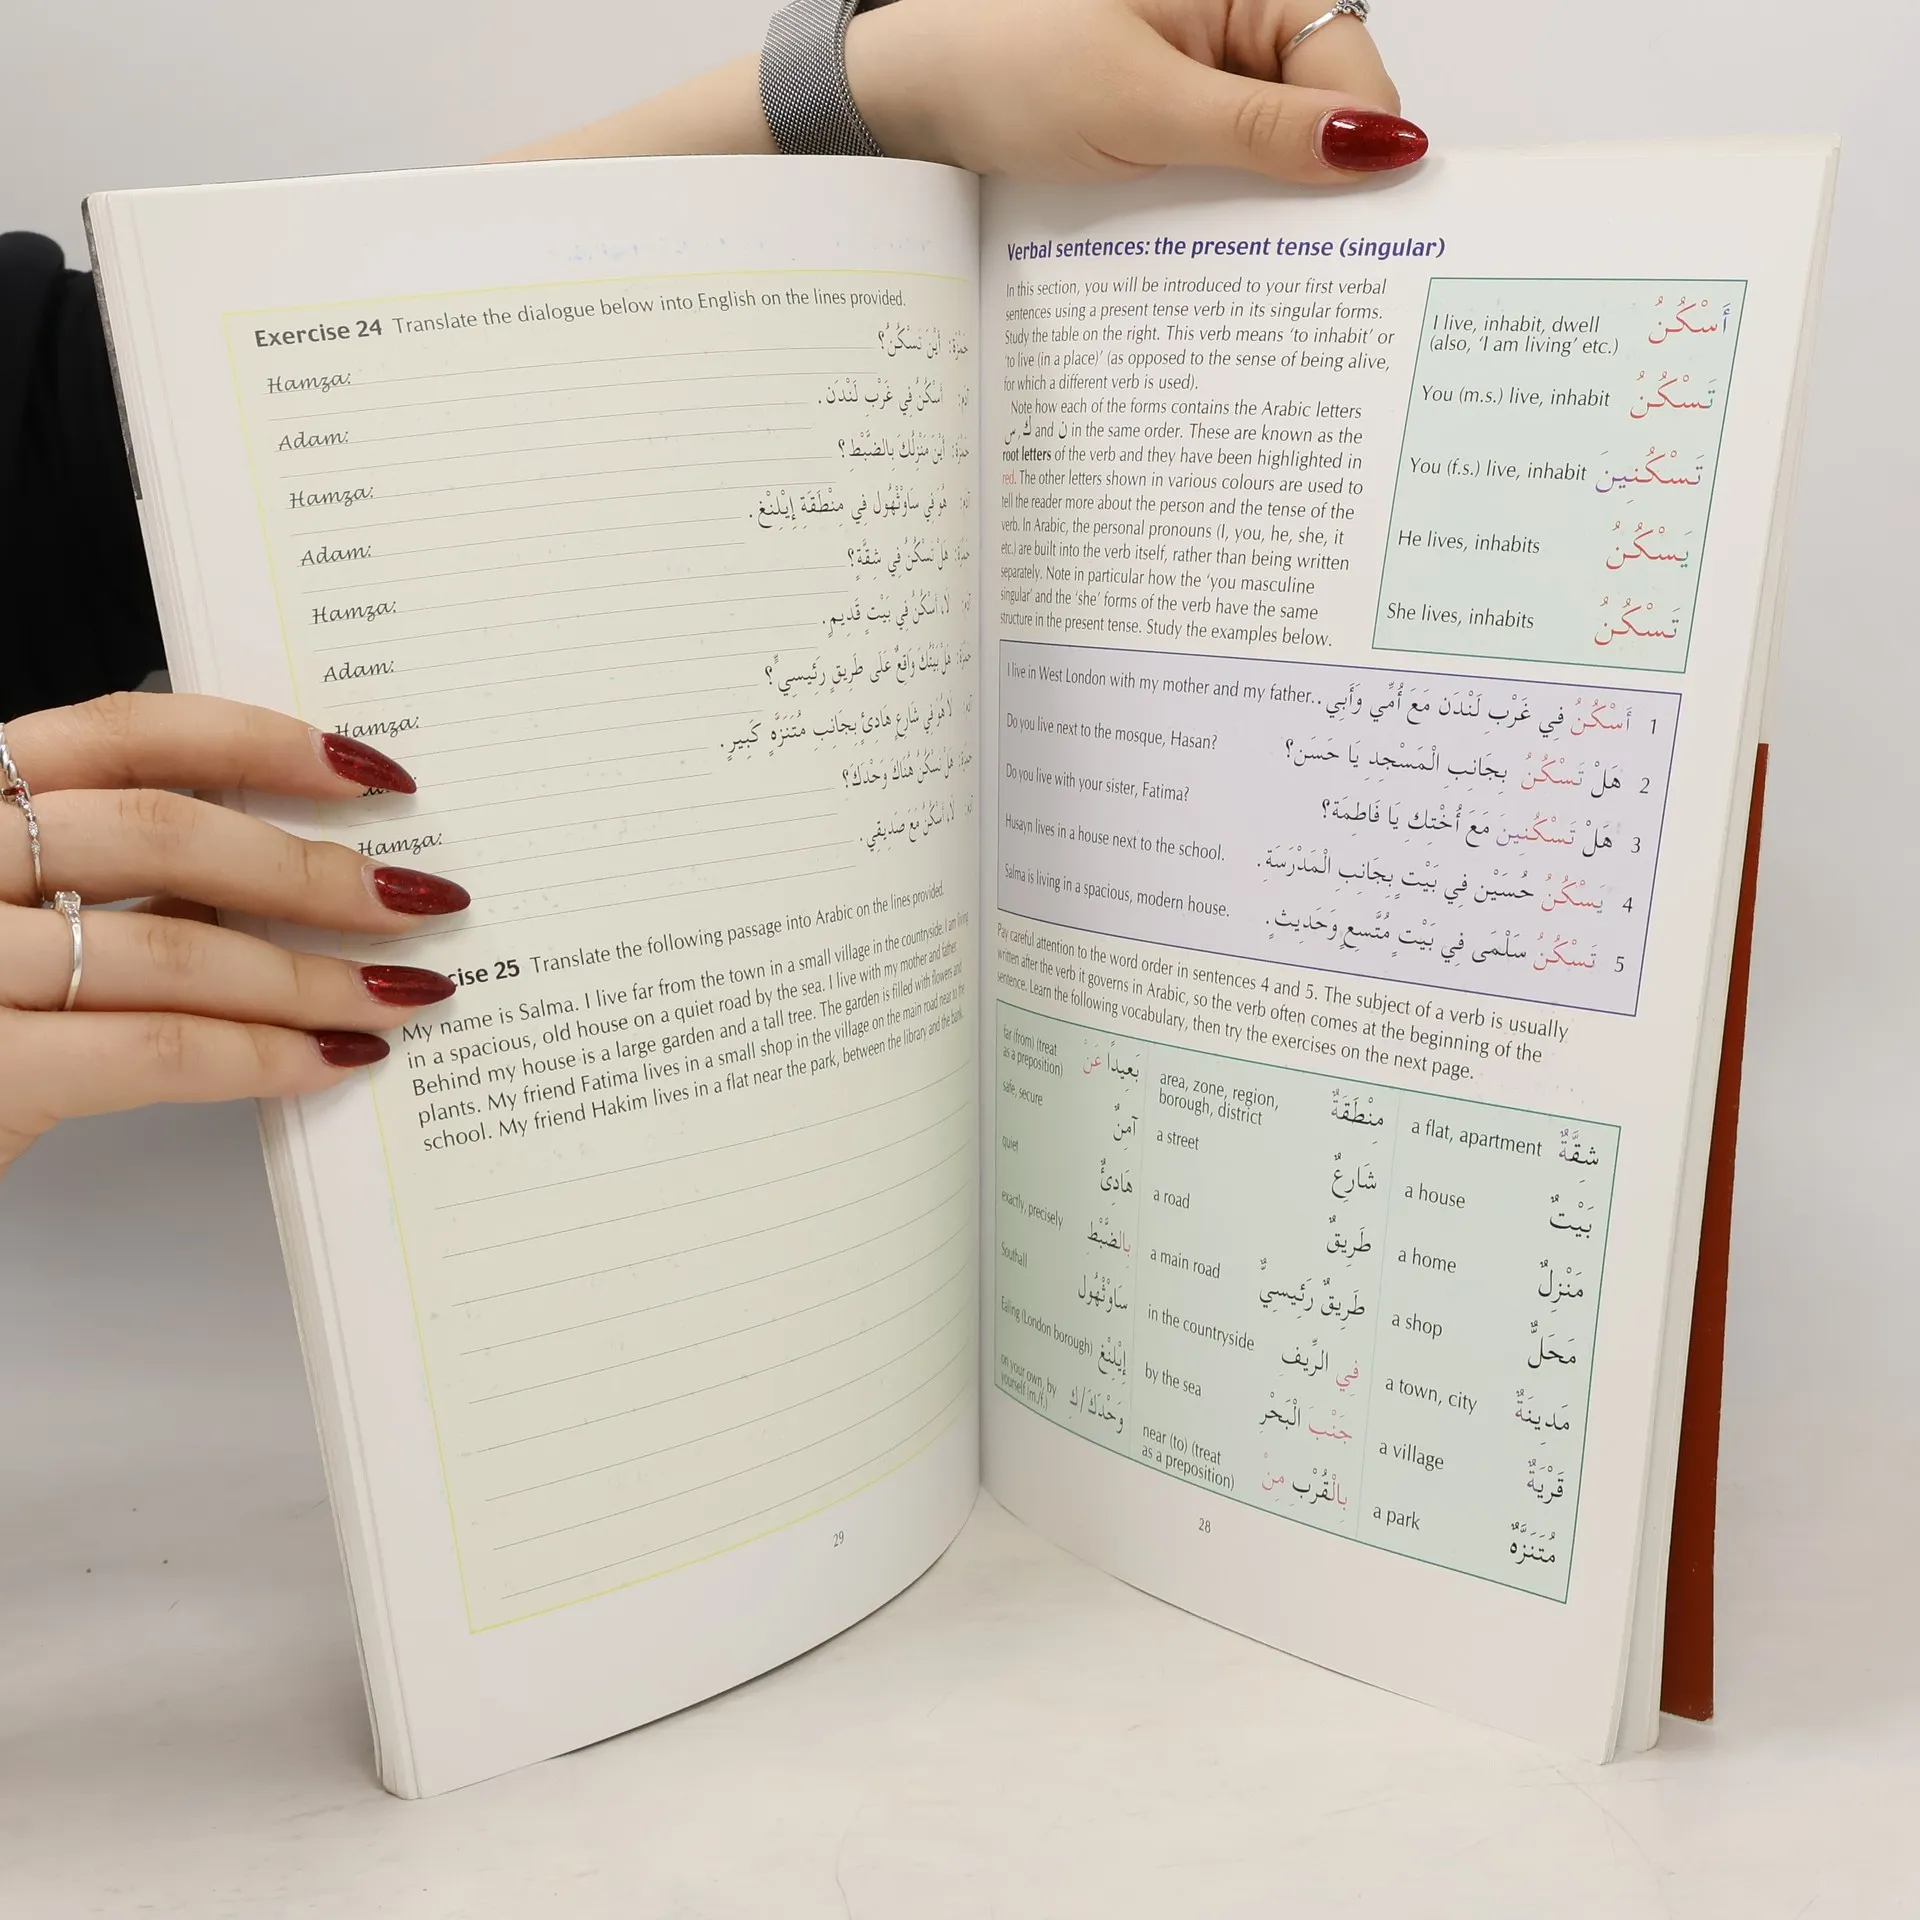 Exercise 24 Translate the dialogue below into English on the lines provided.
حَمْزَة: أَيْنَ تَسْكُنُ؟
Hamza:
آدَم: أَسْكُنُ فِي غَرْبِ لَنْدَن.
Adam:
حَمْزَة: أَيْنَ مَنْزِلُكَ بِالضَّبْطِ؟
Hamza:
آدَم: هُوَ فِي سَاوْثْهُول فِي مِنْطَقَةِ إِيْلِنْغ.
Adam:
حَمْزَة: هَلْ تَسْكُنُ فِي شِقَّةٍ؟
Hamza:
آدَم: لَا، أَسْكُنُ فِي بَيْتٍ قَدِيمٍ.
Adam:
حَمْزَة: هَلْ بَيْتُكَ وَاقِعٌ عَلَى طَرِيقٍ رَئِيسِيٍّ؟
Hamza:
آدَم: لَا هُوَ فِي شَارِعٍ هَادِئٍ بِجَانِبِ مُتَنَزَّهٍ كَبِيرٍ.
حَمْزَة: هَلْ تَسْكُنُ هُنَاكَ وَحْدَكَ؟
Hamza:
آدَم: لَا، أَسْكُنُ مَعَ صَدِيقِي.
cise 25 Translate the following passage into Arabic on the lines provided.
My name is Salma. I live far from the town in a small village in the countryside. I am living
in a spacious, old house on a quiet road by the sea. I live with my mother and father.
Behind my house is a large garden and a tall tree. The garden is filled with flowers and
plants. My friend Fatima lives in a small shop in the village on the main road near to the
school. My friend Hakim lives in a flat near the park, between the library and the bank.
29
Verbal sentences: the present tense (singular)
In this section, you will be introduced to your first verbal
sentences using a present tense verb in its singular forms.
Study the table on the right. This verb means ‘to inhabit’ or
‘to live (in a place)’ (as opposed to the sense of being alive,
for which a different verb is used).
Note how each of the forms contains the Arabic letters
س, ك and ن in the same order. These are known as the
root letters of the verb and they have been highlighted in
red. The other letters shown in various colours are used to
tell the reader more about the person and the tense of the
verb. In Arabic, the personal pronouns (I, you, he, she, it
etc.) are built into the verb itself, rather than being written
separately. Note in particular how the ‘you masculine
singular’ and the ‘she’ forms of the verb have the same
structure in the present tense. Study the examples below.
I live, inhabit, dwell أَسْكُنُ
(also, ‘I am living’ etc.)
You (m.s.) live, inhabit تَسْكُنُ
You (f.s.) live, inhabit تَسْكُنِينَ
He lives, inhabits يَسْكُنُ
She lives, inhabits تَسْكُنُ
I live in West London with my mother and my father. أَسْكُنُ فِي غَرْبِ لَنْدَن مَعَ أُمِّي وَأَبِي. 1
Do you live next to the mosque, Hasan? هَلْ تَسْكُنُ بِجَانِبِ الْمَسْجِدِ يَا حَسَن؟ 2
Do you live with your sister, Fatima? هَلْ تَسْكُنِينَ مَعَ أُخْتِكِ يَا فَاطِمَة؟ 3
Husayn lives in a house next to the school. يَسْكُنُ حُسَيْن فِي بَيْتٍ بِجَانِبِ الْمَدْرَسَةِ. 4
Salma is living in a spacious, modern house. تَسْكُنُ سَلْمَى فِي بَيْتٍ مُتَّسِعٍ وَحَدِيثٍ. 5
Pay careful attention to the word order in sentences 4 and 5. The subject of a verb is usually
written after the verb it governs in Arabic, so the verb often comes at the beginning of the
sentence. Learn the following vocabulary, then try the exercises on the next page.
far (from) (treat
as a preposition) بَعِيدًا عَنْ
safe, secure آمِنٌ
quiet هَادِئٌ
exactly, precisely بِالضَّبْطِ
Southall سَاوْثْهُول
Ealing (London borough) إِيْلِنْغ
on your own, by
yourself (m./f.) وَحْدَكَ/كِ
area, zone, region,
borough, district مِنْطَقَةٌ
a street شَارِعٌ
a road طَرِيقٌ
a main road طَرِيقٌ رَئِيسِيٌّ
in the countryside فِي الرِّيفِ
by the sea جَنْبَ الْبَحْرِ
near (to) (treat
as a preposition) بِالْقُرْبِ مِنْ
a flat, apartment شِقَّةٌ
a house بَيْتٌ
a home مَنْزِلٌ
a shop مَحَلٌّ
a town, city مَدِينَةٌ
a village قَرْيَةٌ
a park مُتَنَزَّهٌ
28